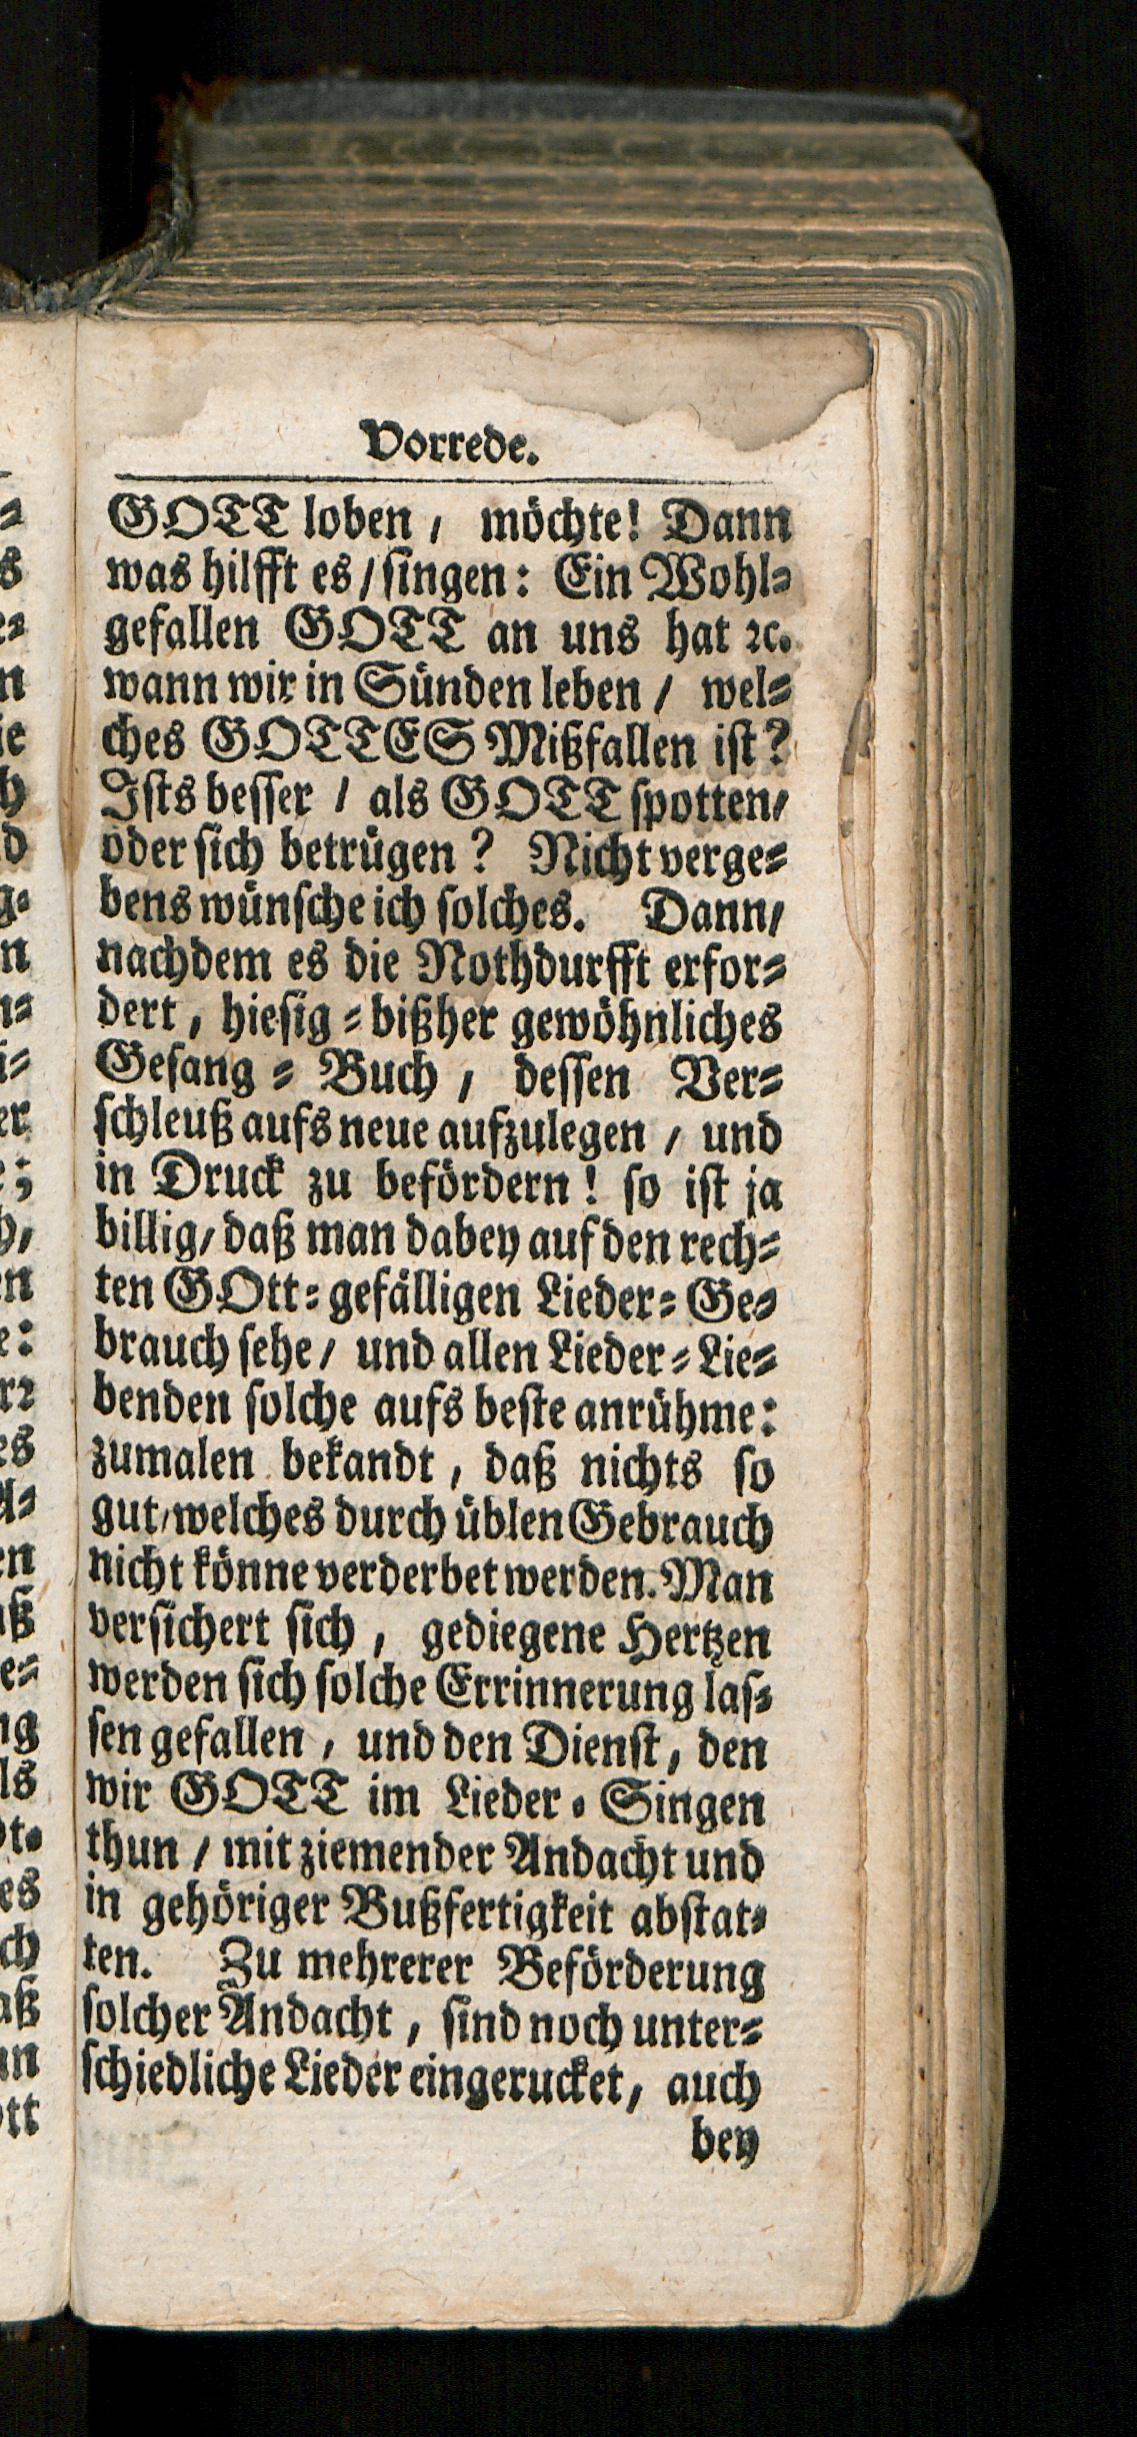 Vorrede.
GOTT loben / möchte! Dann
was hilfft es / singen: Ein Wohl=
gefallen GOTT an uns hat ꝛc.
wann wir in Sünden leben / wel=
ches GOTTES Mißfallen ist?
Ists besser / als GOTT spotten/
oder sich betrügen? Nicht verge=
bens wünsche ich solches. Dann/
nachdem es die Nothdurfft erfor=
dert, hiesig=bißher gewöhnliches
Gesang=Buch, dessen Ver=
schleuß aufs neue aufzulegen / und
in Druck zu befördern! so ist ja
billig/ daß man dabey auf den rech=
ten GOtt=gefälligen Lieder=Ge=
brauch sehe / und allen Lieder=Lie=
benden solche aufs beste anrühme:
zumalen bekandt, daß nichts so
gut/welches durch üblen Gebrauch
nicht könne verderbet werden. Man
versichert sich, gediegene Hertzen
werden sich solche Errinnerung las=
sen gefallen, und den Dienst, den
wir GOTT im Lieder=Singen
thun / mit ziemender Andacht und
in gehöriger Bußfertigkeit abstat=
ten. Zu mehrerer Beförderung
solcher Andacht, sind noch unter=
schiedliche Lieder eingerucket, auch
bey